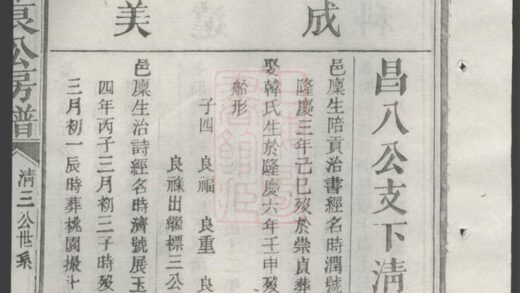 昌八公支下清
成
美
邑廩生陪貢治書經名時潤號
隆慶三年己巳歿於崇貞葬
娶韓氏生於隆慶六年壬申歿
船形
子四 良福 良重 良
良祿出繼標三公
邑廩生治詩經名時濟號展玉
四年丙子三月初三子時歿
三月初一辰時葬桃園撮十
公房譜
清三公世系